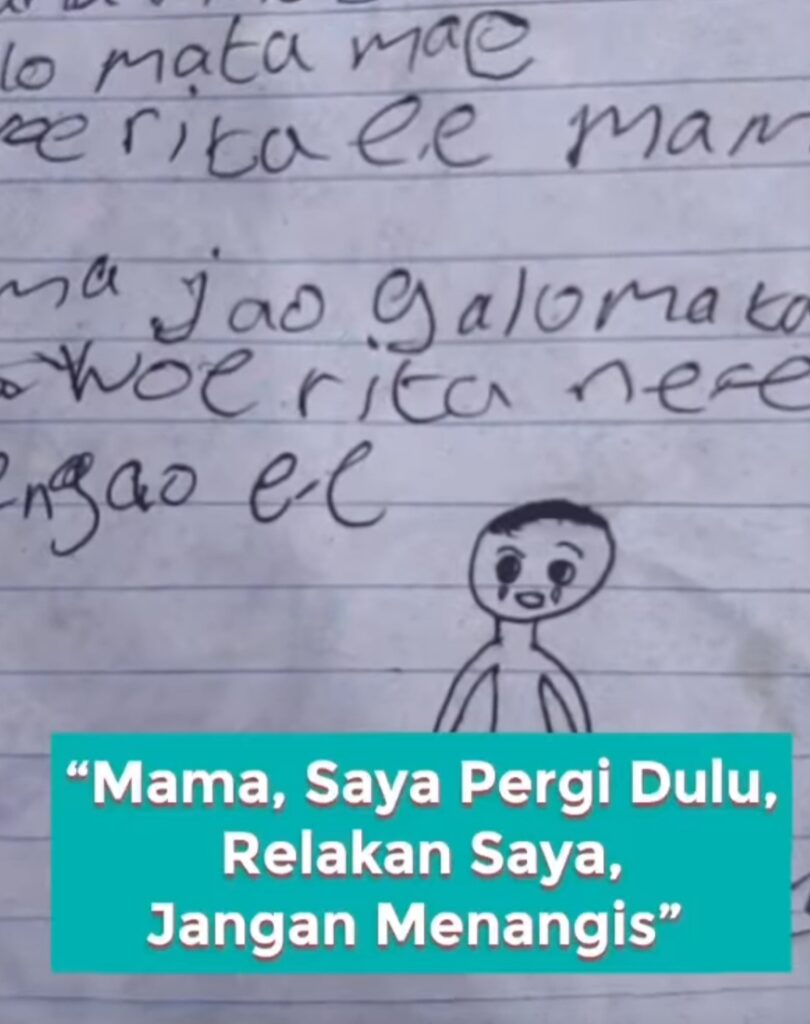 lo mata mae
rita ee mam
ma jao galo mata
woe rita ne
ngao ee
“Mama, Saya Pergi Dulu,
Relakan Saya,
Jangan Menangis”